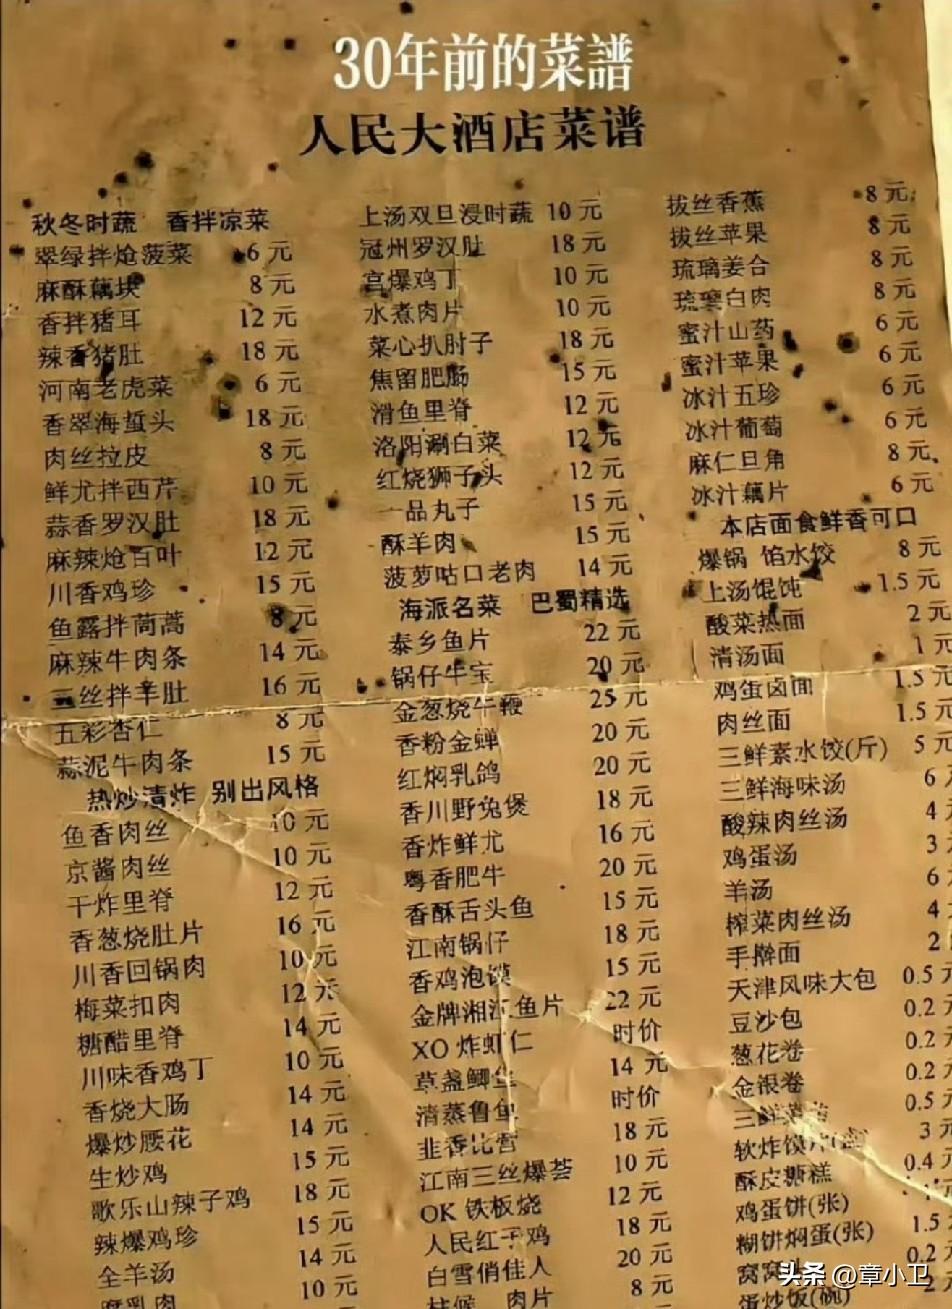 30年前的菜譜
人民大酒店菜谱
秋冬时蔬 香拌凉菜
翠绿拌炝菠菜 6元
麻酥藕块 8元
香拌猪耳 12元
辣香猪肚 18元
河南老虎菜 6元
香翠海蜇头 18元
肉丝拉皮 8元
鲜尤拌西芹 10元
蒜香罗汉肚 18元
麻辣炝百叶 12元
川香鸡珍 15元
鱼露拌茼蒿 8元
麻辣牛肉条 14元
三丝拌羊肚 16元
五彩杏仁 8元
蒜泥牛肉条 15元
热炒清炸 别出风格
鱼香肉丝 10元
京酱肉丝 10元
干炸里脊 12元
香葱烧肚片 16元
川香回锅肉 10元
梅菜扣肉 12元
糖醋里脊 14元
川味香鸡丁 10元
香烧大肠 14元
爆炒腰花 14元
生炒鸡 15元
歌乐山辣子鸡 18元
辣爆鸡珍 15元
全羊汤 14元
腐乳肉 10元
上汤双旦浸时蔬 10元
冠州罗汉肚 18元
宫爆鸡丁 10元
水煮肉片 10元
菜心扒肘子 18元
焦留肥肠 15元
滑鱼里脊 12元
洛阳涮白菜 12元
红烧狮子头 12元
一品丸子 15元
酥羊肉 15元
菠萝咕口老肉 14元
海派名菜 巴蜀精选
泰乡鱼片 22元
锅仔牛宝 20元
金葱烧牛鞭 25元
香粉金蝉 20元
红焖乳鸽 20元
香川野兔煲 18元
香炸鲜尤 16元
粤香肥牛 20元
香酥舌头鱼 15元
江南锅仔 18元
香鸡泡馍 15元
金牌湘江鱼片 22元
XO炸虾仁 时价
草盏鲫鱼 14元
清蒸鲁鱼 时价
韭香比管 18元
江南三丝爆荟 10元
OK铁板烧 12元
人民红干鸡 18元
白雪俏佳人 20元
肉片 8元
拔丝香蕉 8元
拔丝苹果 8元
琉璃姜合 8元
琉璃白肉 8元
蜜汁山药 6元
蜜汁苹果 6元
冰汁五珍 6元
冰汁葡萄 6元
麻仁旦角 8元
冰汁藕片 6元
本店面食鲜香可口
爆锅 馅水饺 8元
上汤馄饨 1.5元
酸菜热面 2元
清汤面 1元
鸡蛋卤面 1.5元
肉丝面 1.5元
三鲜素水饺(斤) 5元
三鲜海味汤 6
酸辣肉丝汤 4
鸡蛋汤 3
羊汤 6
榨菜肉丝汤 4
手擀面 2
天津风味大包 0.5元
豆沙包 0.2
葱花卷 0.2
金银卷 0.2
三鲜 0.5
软炸馍片 3
酥皮糖糕 0.4
鸡蛋饼(张)
糊饼焖蛋(张) 1.5
窝窝 0.2
蛋炒饭(碗) 2
头条 @章小卫